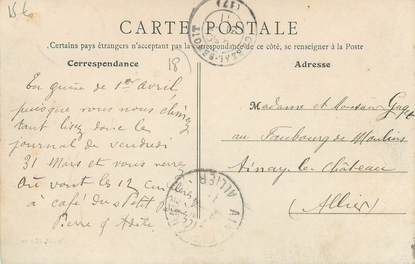 15 €
CARTE POSTALE
Certains pays étrangers n'acceptant pas la correspondance de ce côté, se renseigner à la Poste
Correspondance
Adresse
18
(17)
En guise de 1er Avril,
puisque vous nous
tant lisez donc le
journal de vendredi
31 Mars et vous verrez
Où vont les 12 cuillères
à café du Petit
Pierre
Madame et Monsieur
au Faubourg de Moulins
Ainay-le-Château
(Allier)
ALLIER